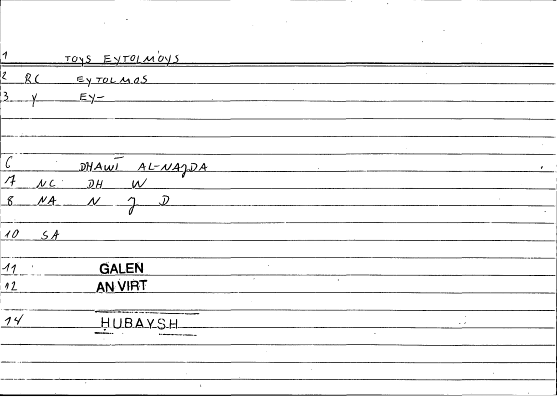 1 TOYS EYTOLMOYS
2 RC EYTOLMOS
3 Y EY-
6 DHAWĪ AL-NAJDA
7 NC DH W
8 NA N J D
10 SA
11 GALEN
12 AN VIRT
14 ḤUBAYSH